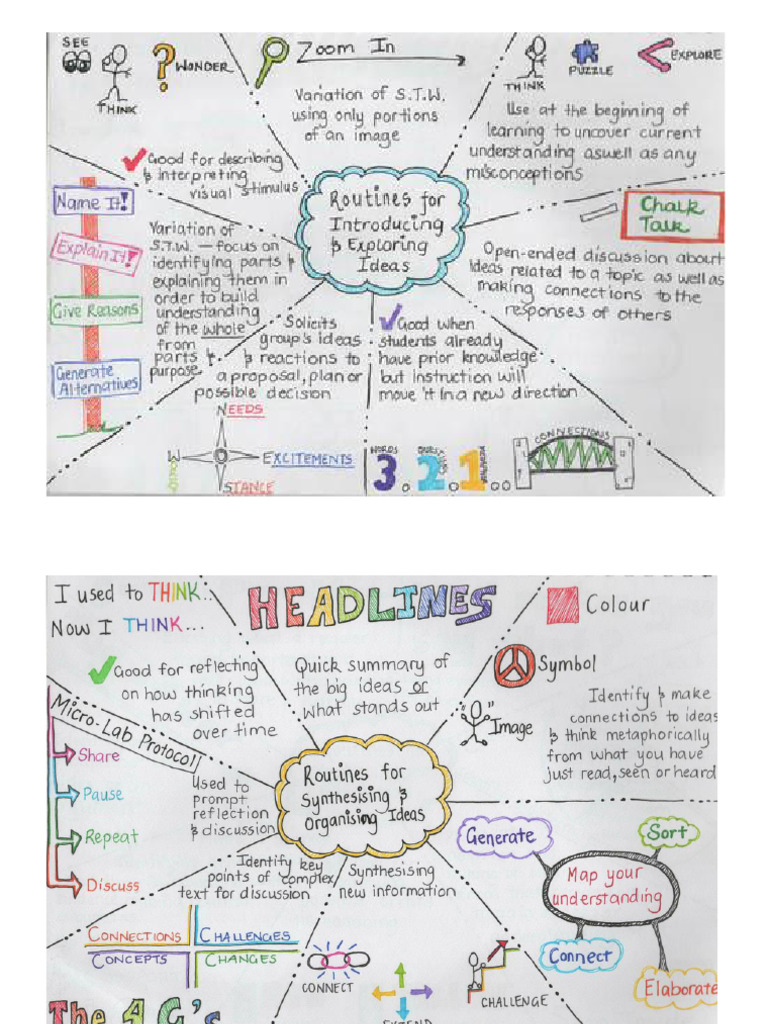 SEE
THINK
? WONDER
Zoom In
THINK
PUZZLE
EXPLORE
Variation of S.T.W.
using only portions
of an image
Use at the beginning of
learning to uncover current
understanding aswell as any
misconceptions
Good for describing
& interpreting
visual stimulus
Routines for
Introducing
& Exploring
Ideas
Name It!
Explain It!
Give Reasons
Generate
Alternatives
Variation of
S.T.W. — focus on
identifying parts &
explaining them in
order to build
understanding
of the whole
from
parts &
purpose
Chalk
Talk
Open-ended discussion about
ideas related to a topic as well as
making connections to the
responses of others
Solicits
group's ideas
& reactions to
a proposal, plan or
possible decision
Good when
students already
have prior knowledge
but instruction will
move it in a new direction
NEEDS
W
EXCITEMENTS
STANCE
WORDS
3.2.1...
CONNECTIONS
I used to THINK..
Now I THINK...
HEADLINES
Colour
Symbol
"Image"
Good for reflecting
on how thinking
has shifted
over time
Quick summary of
the big ideas or
What stands out
Identify & make
connections to ideas
& think metaphorically
from what you have
just read, seen or heard
Micro-Lab Protocol
Share
Pause
Repeat
Discuss
Used to
prompt
reflection
& discussion
Routines for
Synthesising &
Organising Ideas
Generate
Sort
Map your
understanding
Connect
Elaborate
Identify key
points of complex
text for discussion
Synthesising
new information
CONNECTIONS
CHALLENGES
CONCEPTS
CHANGES
The 4 C's
CONNECT
EXTEND
CHALLENGE